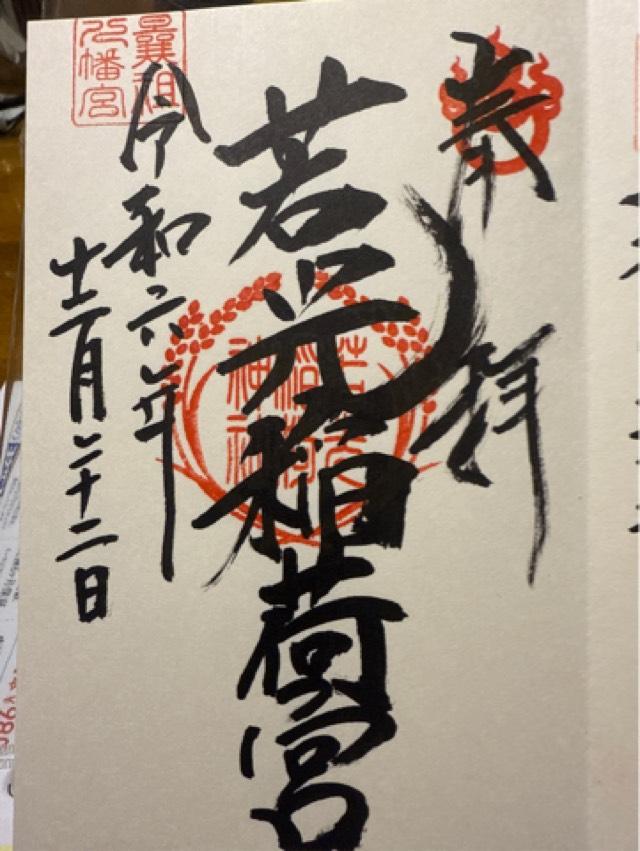 奉拝
若光稲荷宮
令和六年
十二月二十二日
曩祖
八幡宮
稲荷
神社